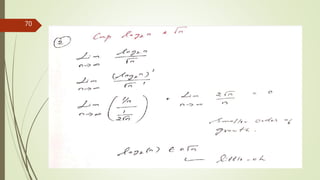 70
② Cmp log₂n & √n
Lim n→∞ log₂n / √n
Lim n→∞ (log₂n)' / √n '
Lim n→∞ ( 1/n / 1/2√n ) • Lim n→∞ 2√n / n = 0
Smaller order of
growth.
log₂(n) ∈ o√n
little-oh